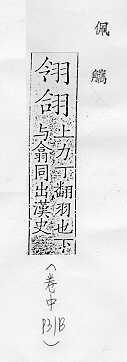 佩觿
翎翖
上力丁翻羽也下
与翕同出漢史
(卷中
P31B)